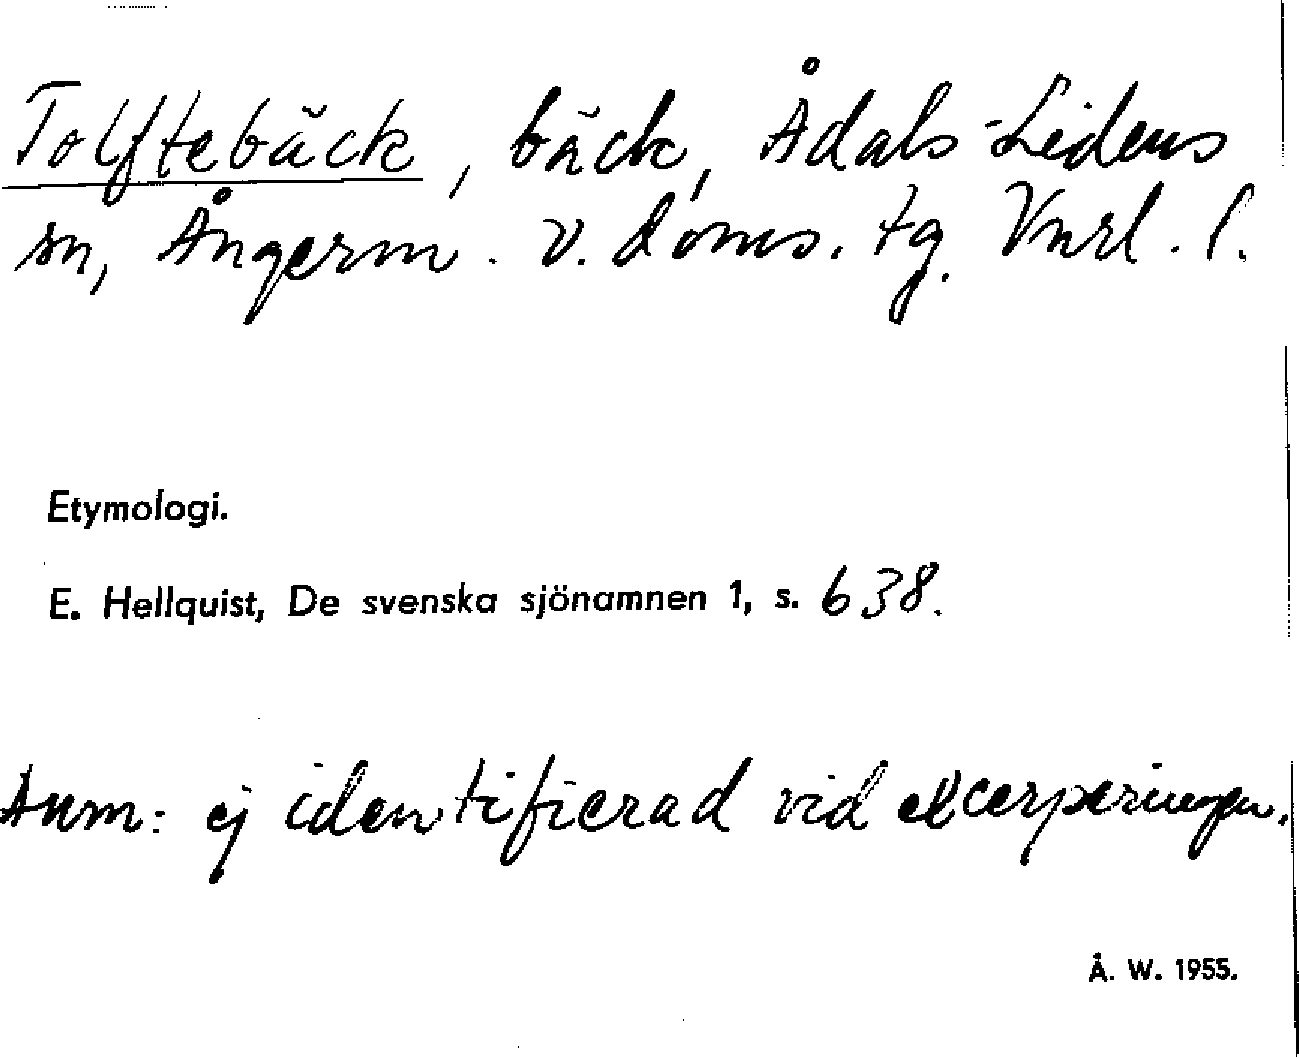 Tolftebäck, bäck, Ådals-Lidens
sn, Ångerm. v. doms. tg. Vnrl. l.
Etymologi.
E. Hellquist, De svenska sjönamnen 1, s. 638.
Anm: ej identifierad vid excerperingen.
Å. W. 1955.